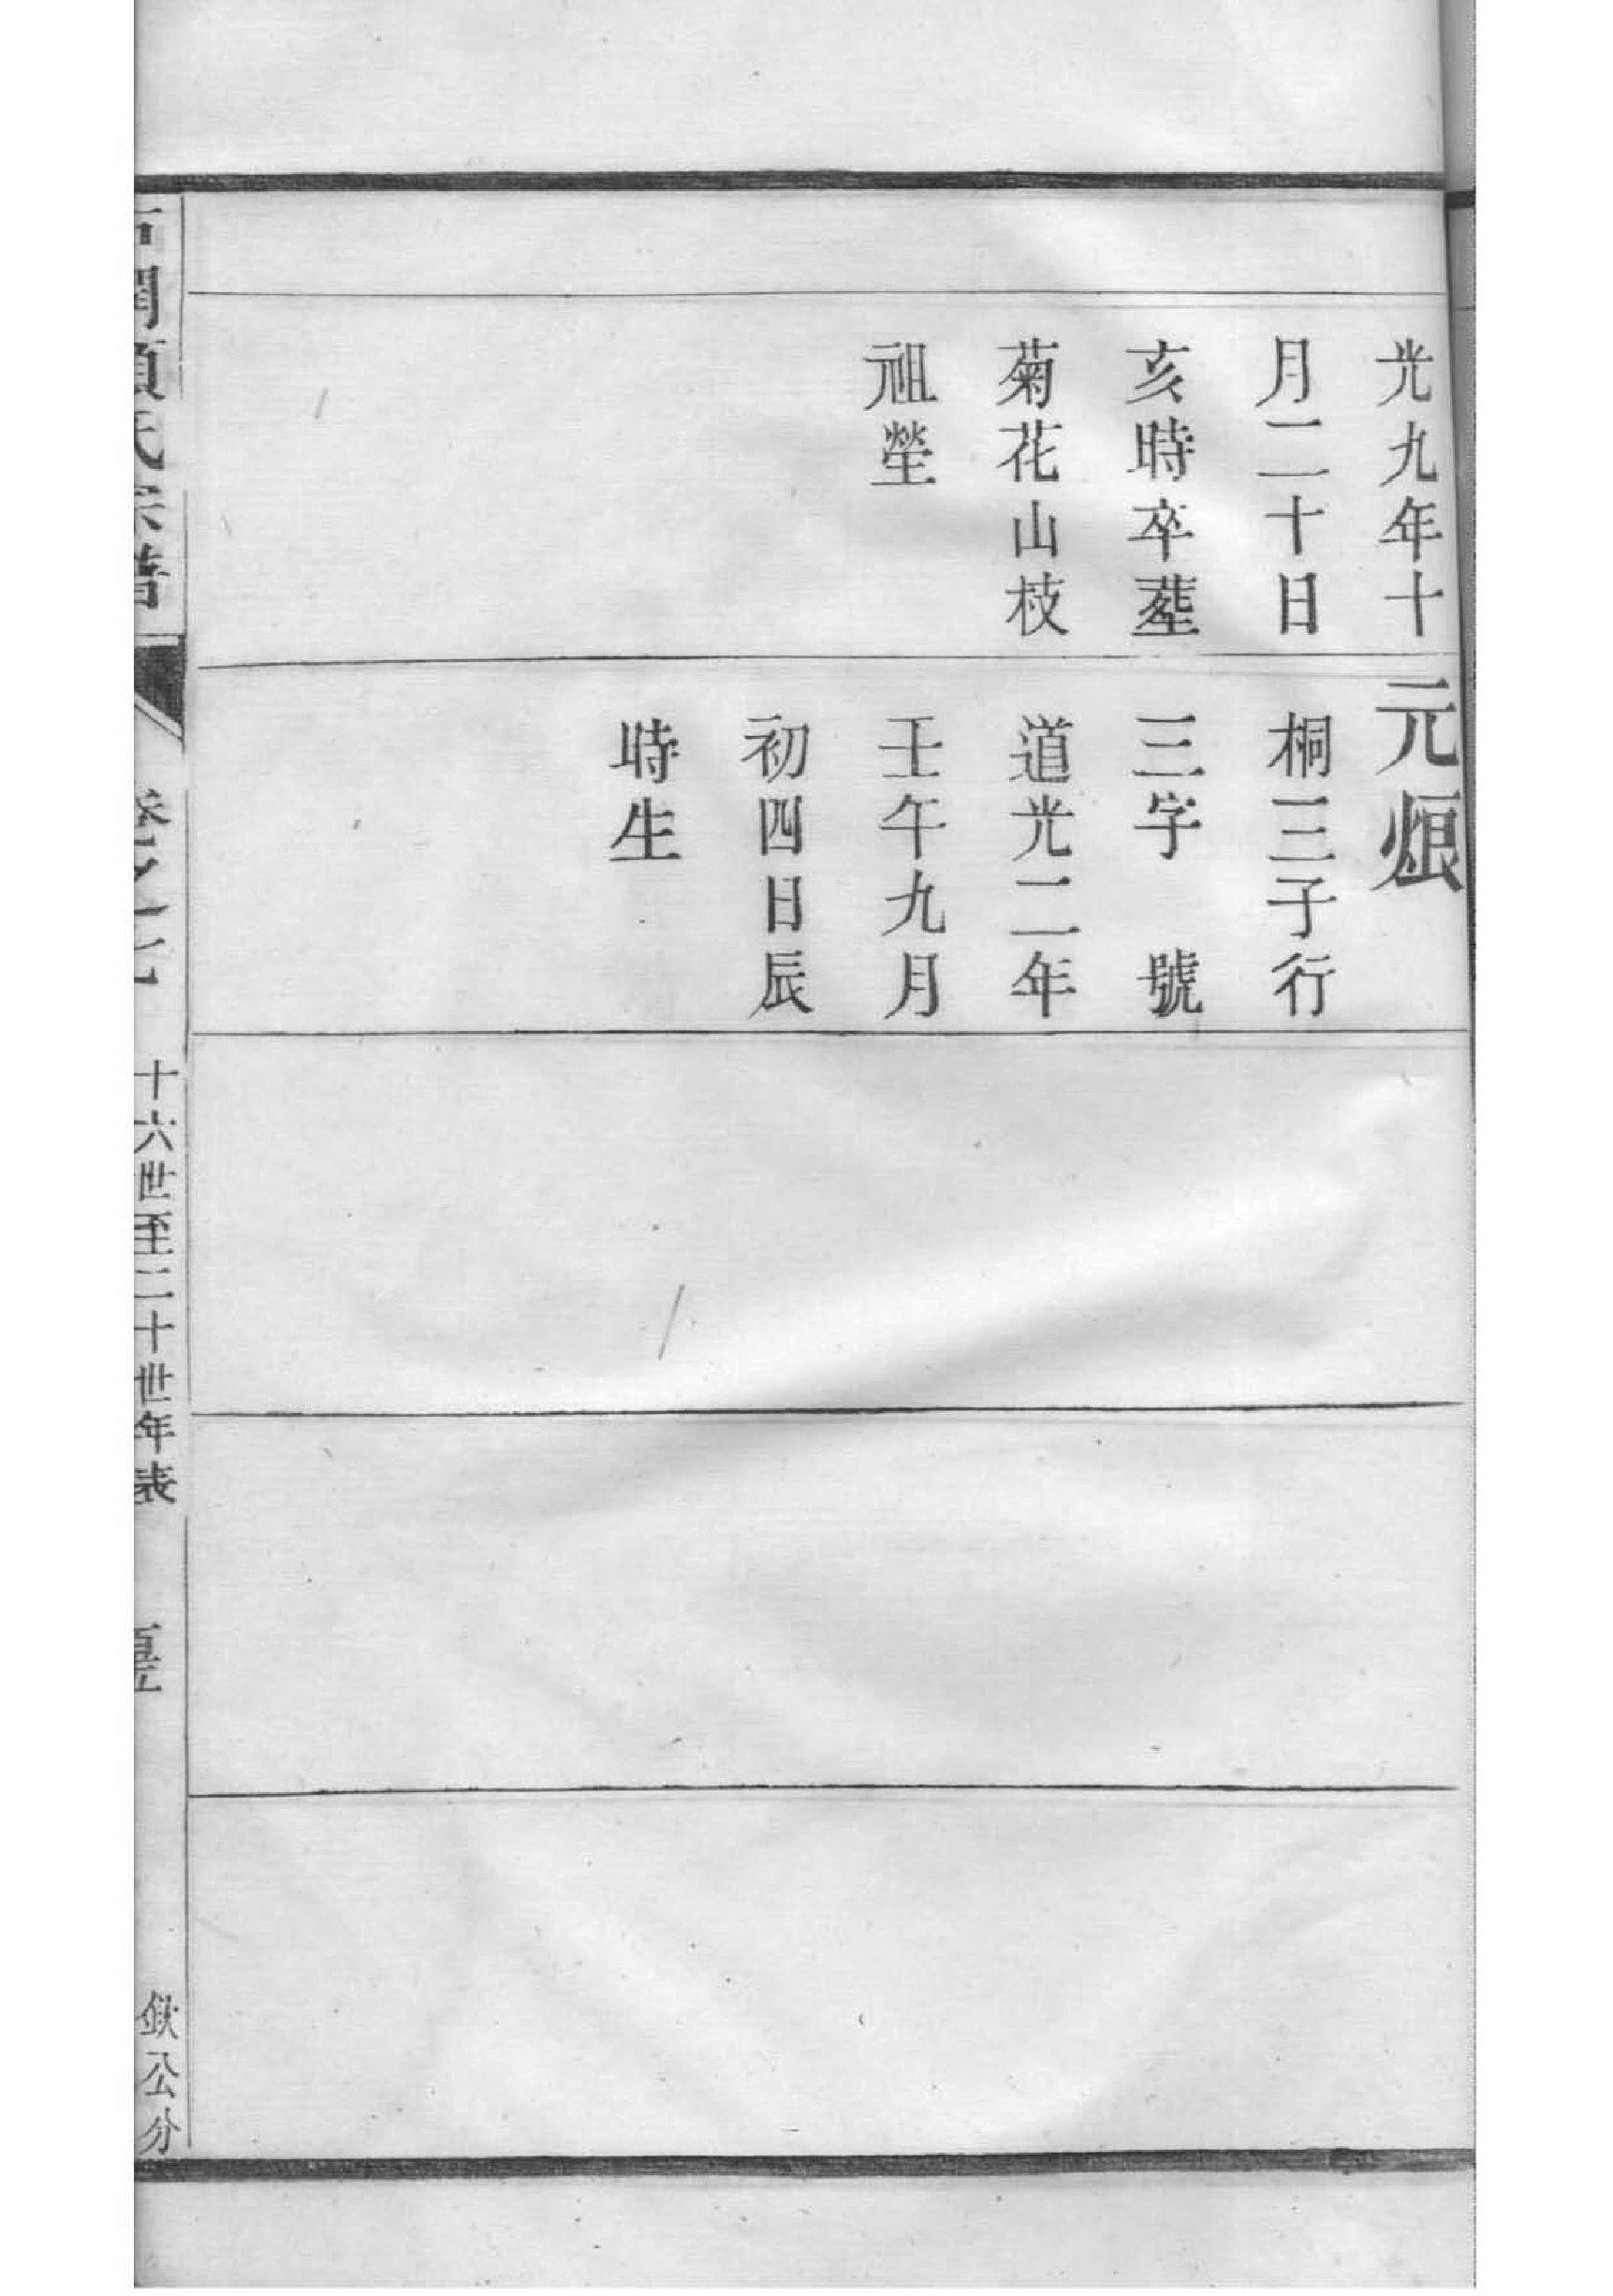 光九年十
月二十日
亥時卒塟
菊花山枝
祖塋
元烺
桐三子行
三字　號
道光二年
壬午九月
初四日辰
時生
十六世至二十世年表
公分